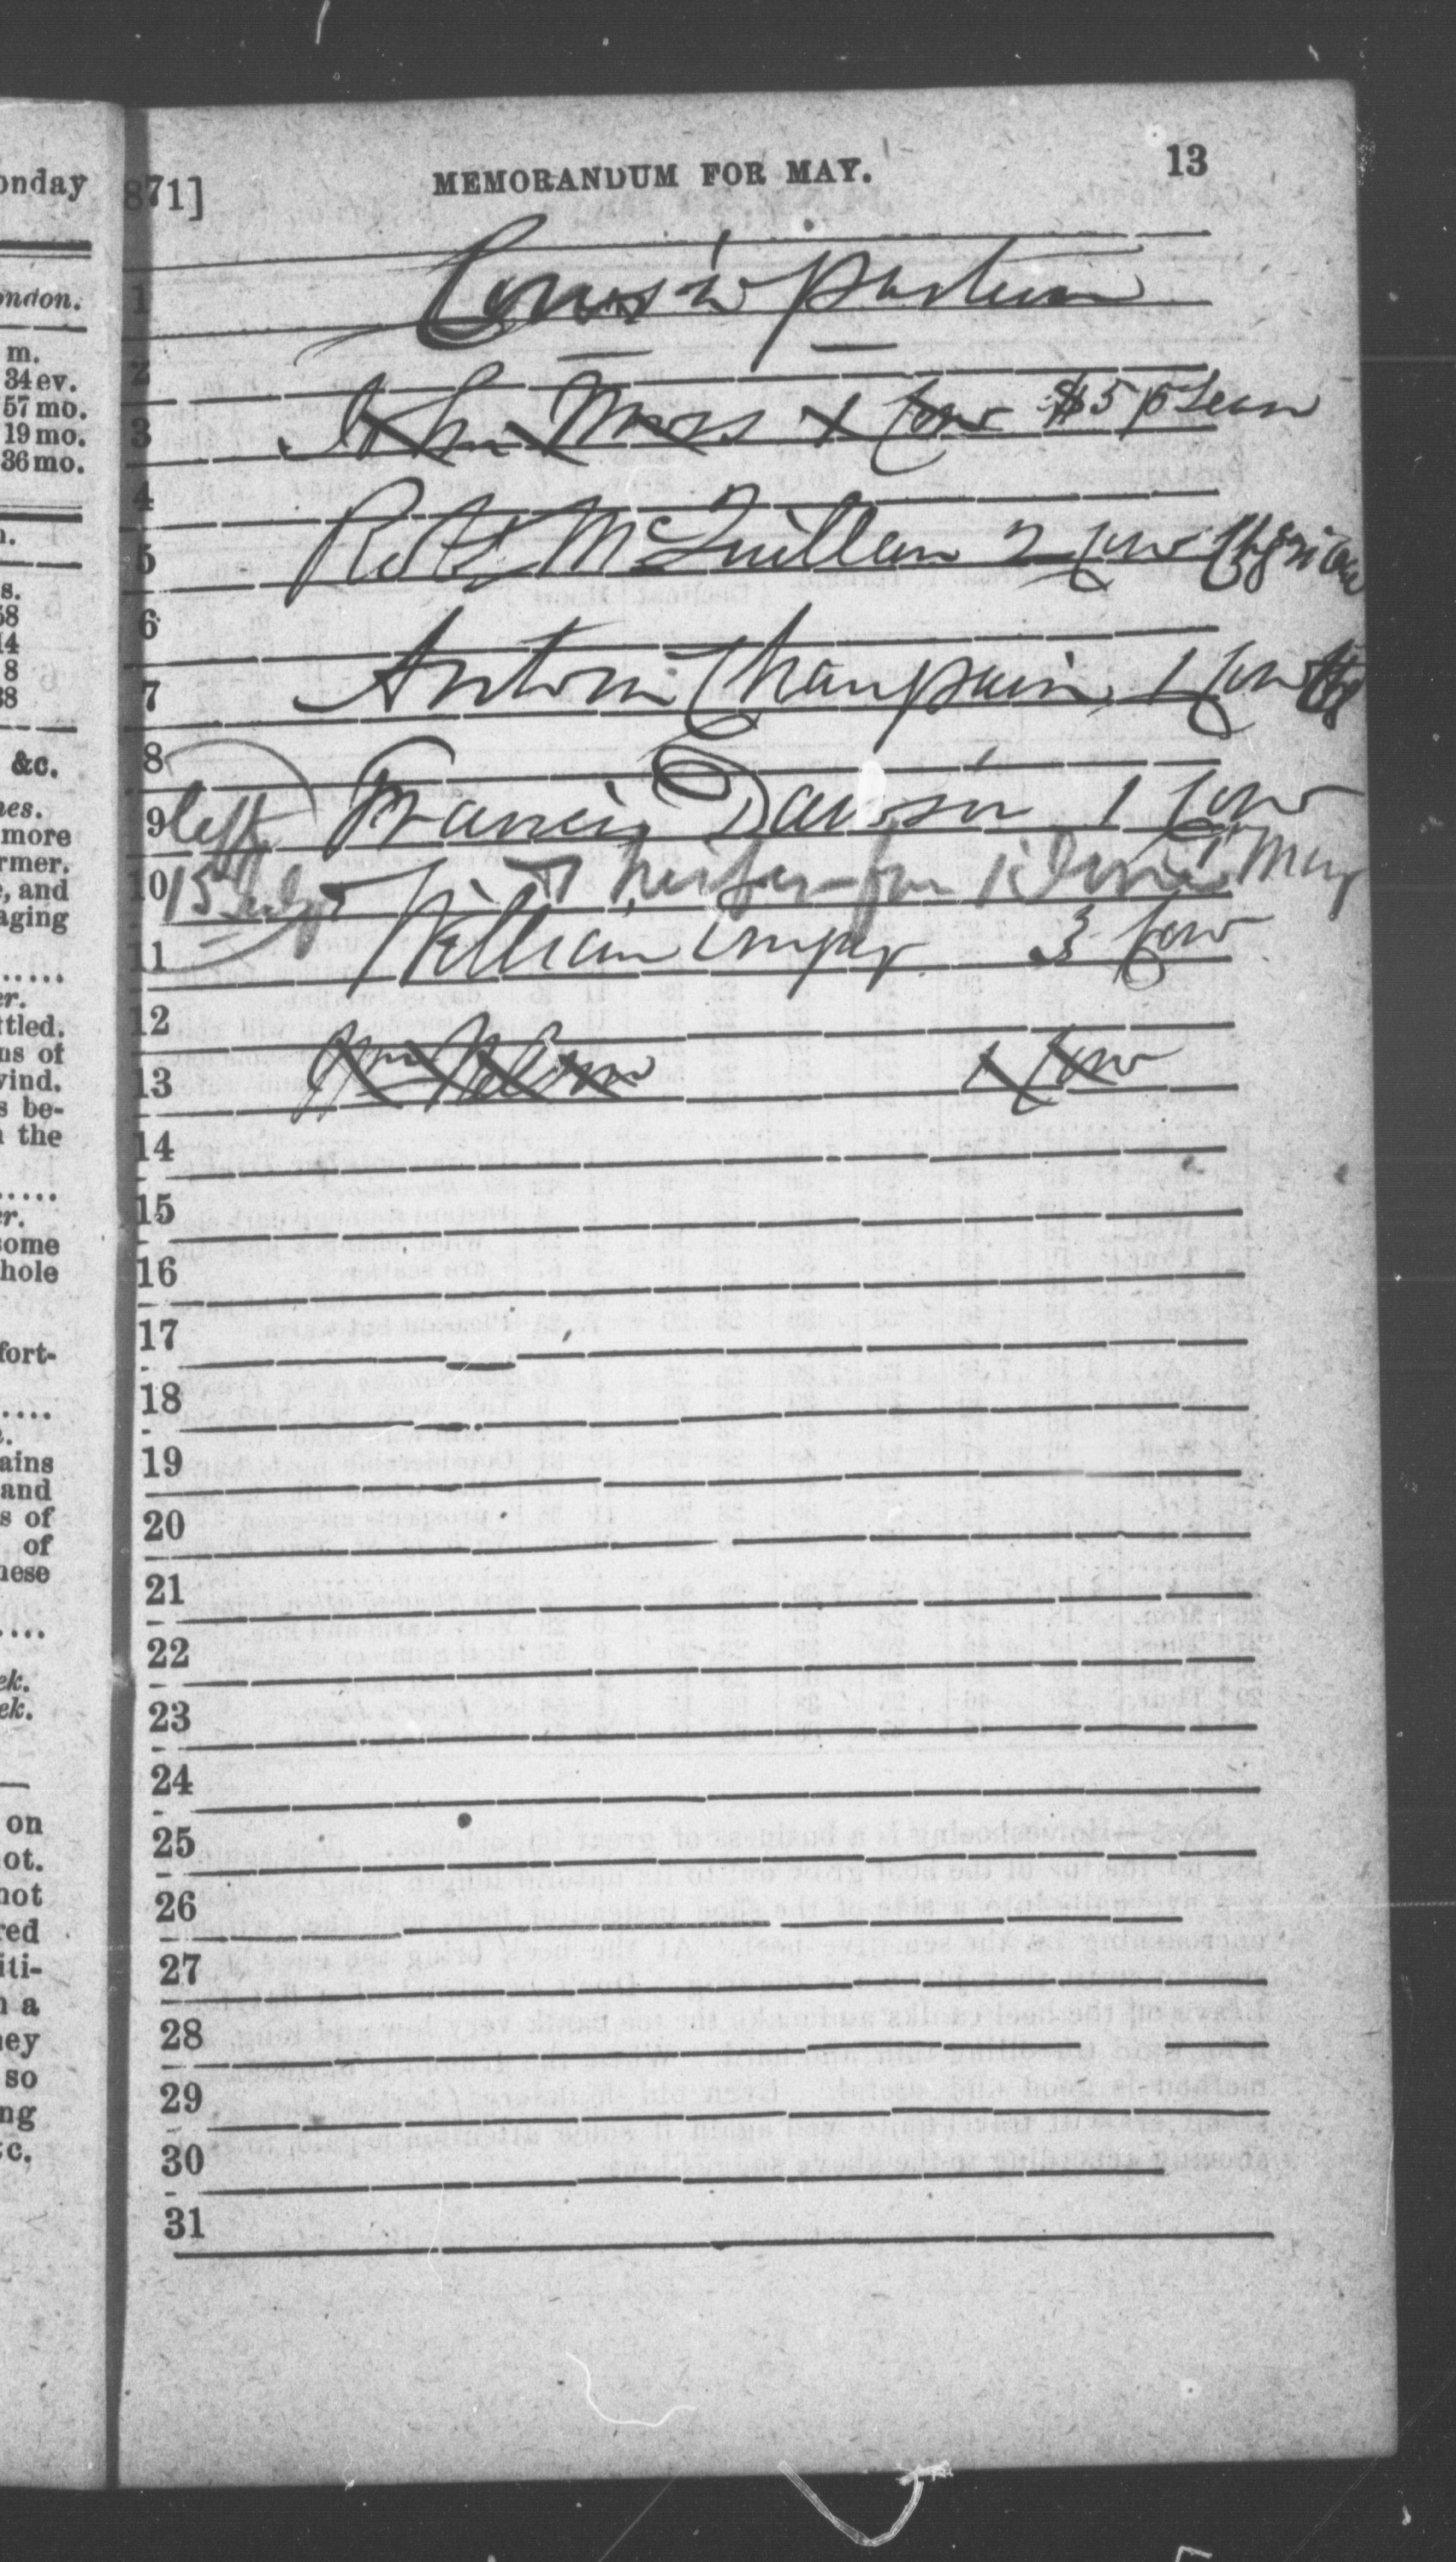 onday
ondon.
m.
34 ev.
57 mo.
19 mo.
36 mo.
s.
58
14
8
38
&c.
more
rmer.
, and
aging
.....
er.
ttled.
ns of
vind.
s be-
the
.....
er.
some
hole
fort-
....
ains
and
s of
of
hese
....
ek.
ek.
on
ot.
not
red
iti-
a
hey
so
ng
tc.
871] MEMORANDUM FOR MAY. 13
1 Cows in pasture
2
3 John Moss 1 Cow $5
4
5 Robt McQuillan 2 Cow
6
7 Antoin Champain 1 Cow
8
9 left Francis Dawson 1 Cow
10 15 July heifer from 1 June May
11 William 3 Cow
12
13 Wm Nelson 1 Cow
14
15
16
17
18
19
20
21
22
23
24
25
26
27
28
29
30
31